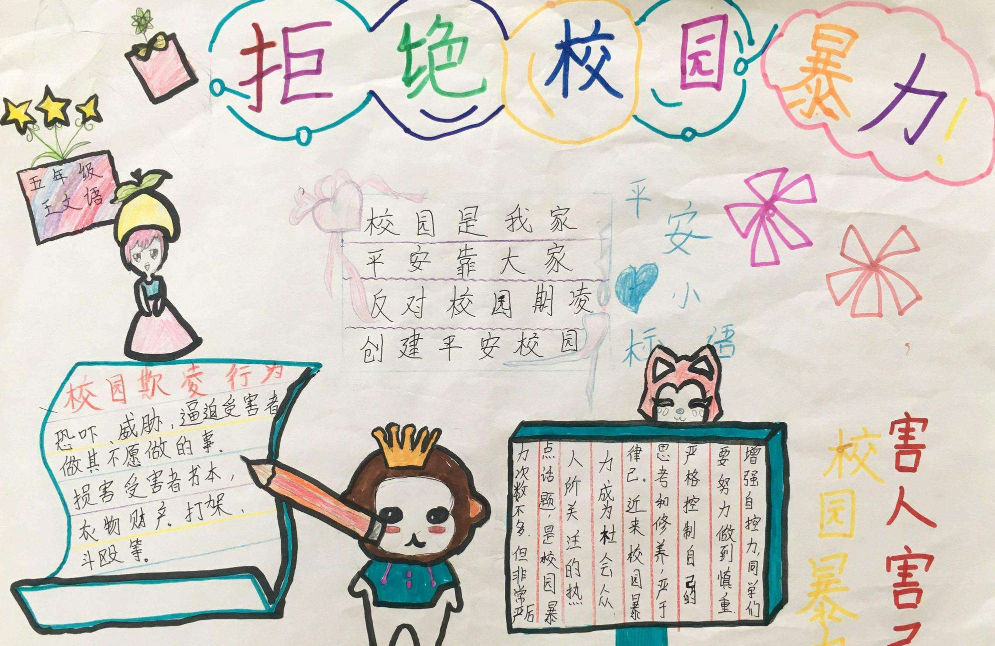 拒绝校园暴力!
五年级
王文
校园是我家
平安靠大家
反对校园期凌
创建平安校园
平安小
标语
校园欺凌行为
恐吓、威胁、逼迫受害者
做其不愿做的事.
损害受害者书本,
衣物财产.打架,
斗殴等。
增强自控力,同学们
要努力做到慎重
严格控制自己的
思考和修养,严于
律己.近来校园暴
力成为杜会众
人所关注的热
点话题,是校园暴
力次数不多.但非常严后
害人害己
校园暴